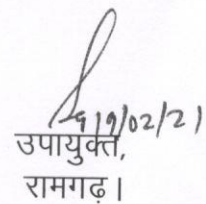 19/02/21
उपायुक्त,
रामगढ़।